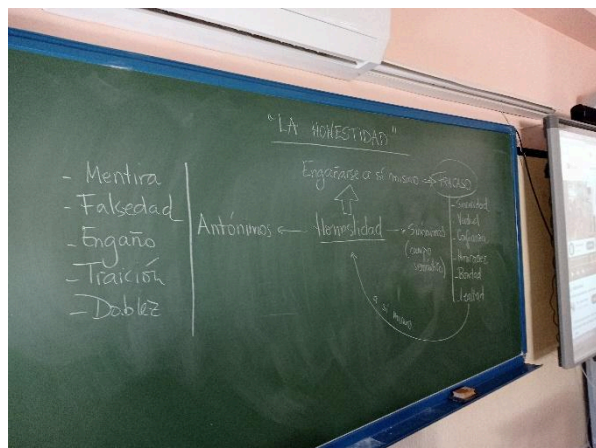 "LA HONESTIDAD"
Engañarse a sí mismo → FRACASO
- Mentira
- Falsedad
- Engaño
- Traición
- Doblez
Antónimos ← Honestidad → Sinónimos
(campo
semántico)
- Sinceridad
- Verdad
- Confianza
- Bondad
- Lealtad
a sí mismo